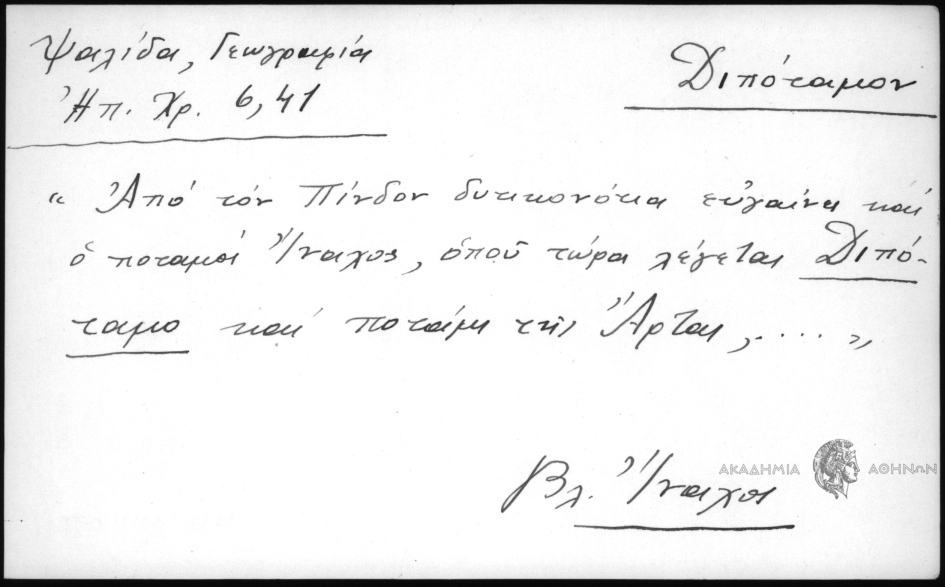 Ψαλίδα, Γεωγραφία
Ἠπ. Χρ. 6,41
Διπόταμον
" Ἀπό τόν Πίνδον δυτικονότια εὐγαίνει καί
ὁ ποταμός Ἴναχος, ὁποῦ τώρα λέγεται Διπό-
ταμο καί ποτάμι τῆς Ἄρτας, .... "
Βλ. Ἴναχος
ΑΚΑΔΗΜΙΑ ΑΘΗΝΩΝ